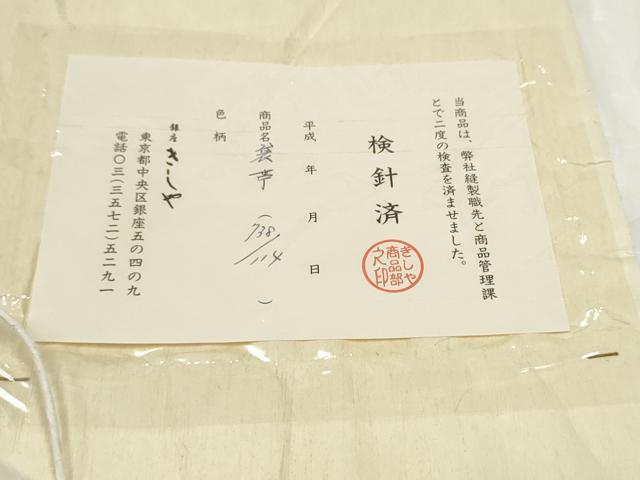 当商品は、弊社縫製職先と商品管理課
とで二度の検査を済ませました。
検針済
きしや
商品部
之印
平成 年 月 日
商品名 袋帯 (738/114)
色柄
銀座 きしや
東京都中央区銀座五の四の九
電話〇三(三五七二)五二九一